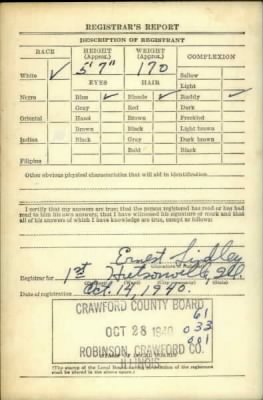 REGISTRAR'S REPORT
DESCRIPTION OF REGISTRANT
RACE HEIGHT (Approx.) WEIGHT (Approx.) COMPLEXION
White ✓ 5' 7" 170 Sallow
EYES HAIR Light
Negro Blue ✓ Blonde ✓ Ruddy ✓
Gray Red Dark
Oriental Hazel Brown Freckled
Brown Black Light brown
Indian Black Gray Dark brown
Bald Black
Filipino
Other obvious physical characteristics that will aid in identification
I certify that my answers are true; that the person registered has read or has had
read to him his own answers; that I have witnessed his signature or mark and that
all of his answers of which I have knowledge are true, except as follows:
Ernest Lindley
Registrar for 1st Hutsonville, Ill.
Date of registration Oct. 1940.
CRAWFORD COUNTY BOARD
61
OCT 28 1940 033
081
ROBINSON, CRAWFORD CO.
ILLINOIS
(The stamp of the Local Board having jurisdiction of the registrant
shall be placed in the above space.)